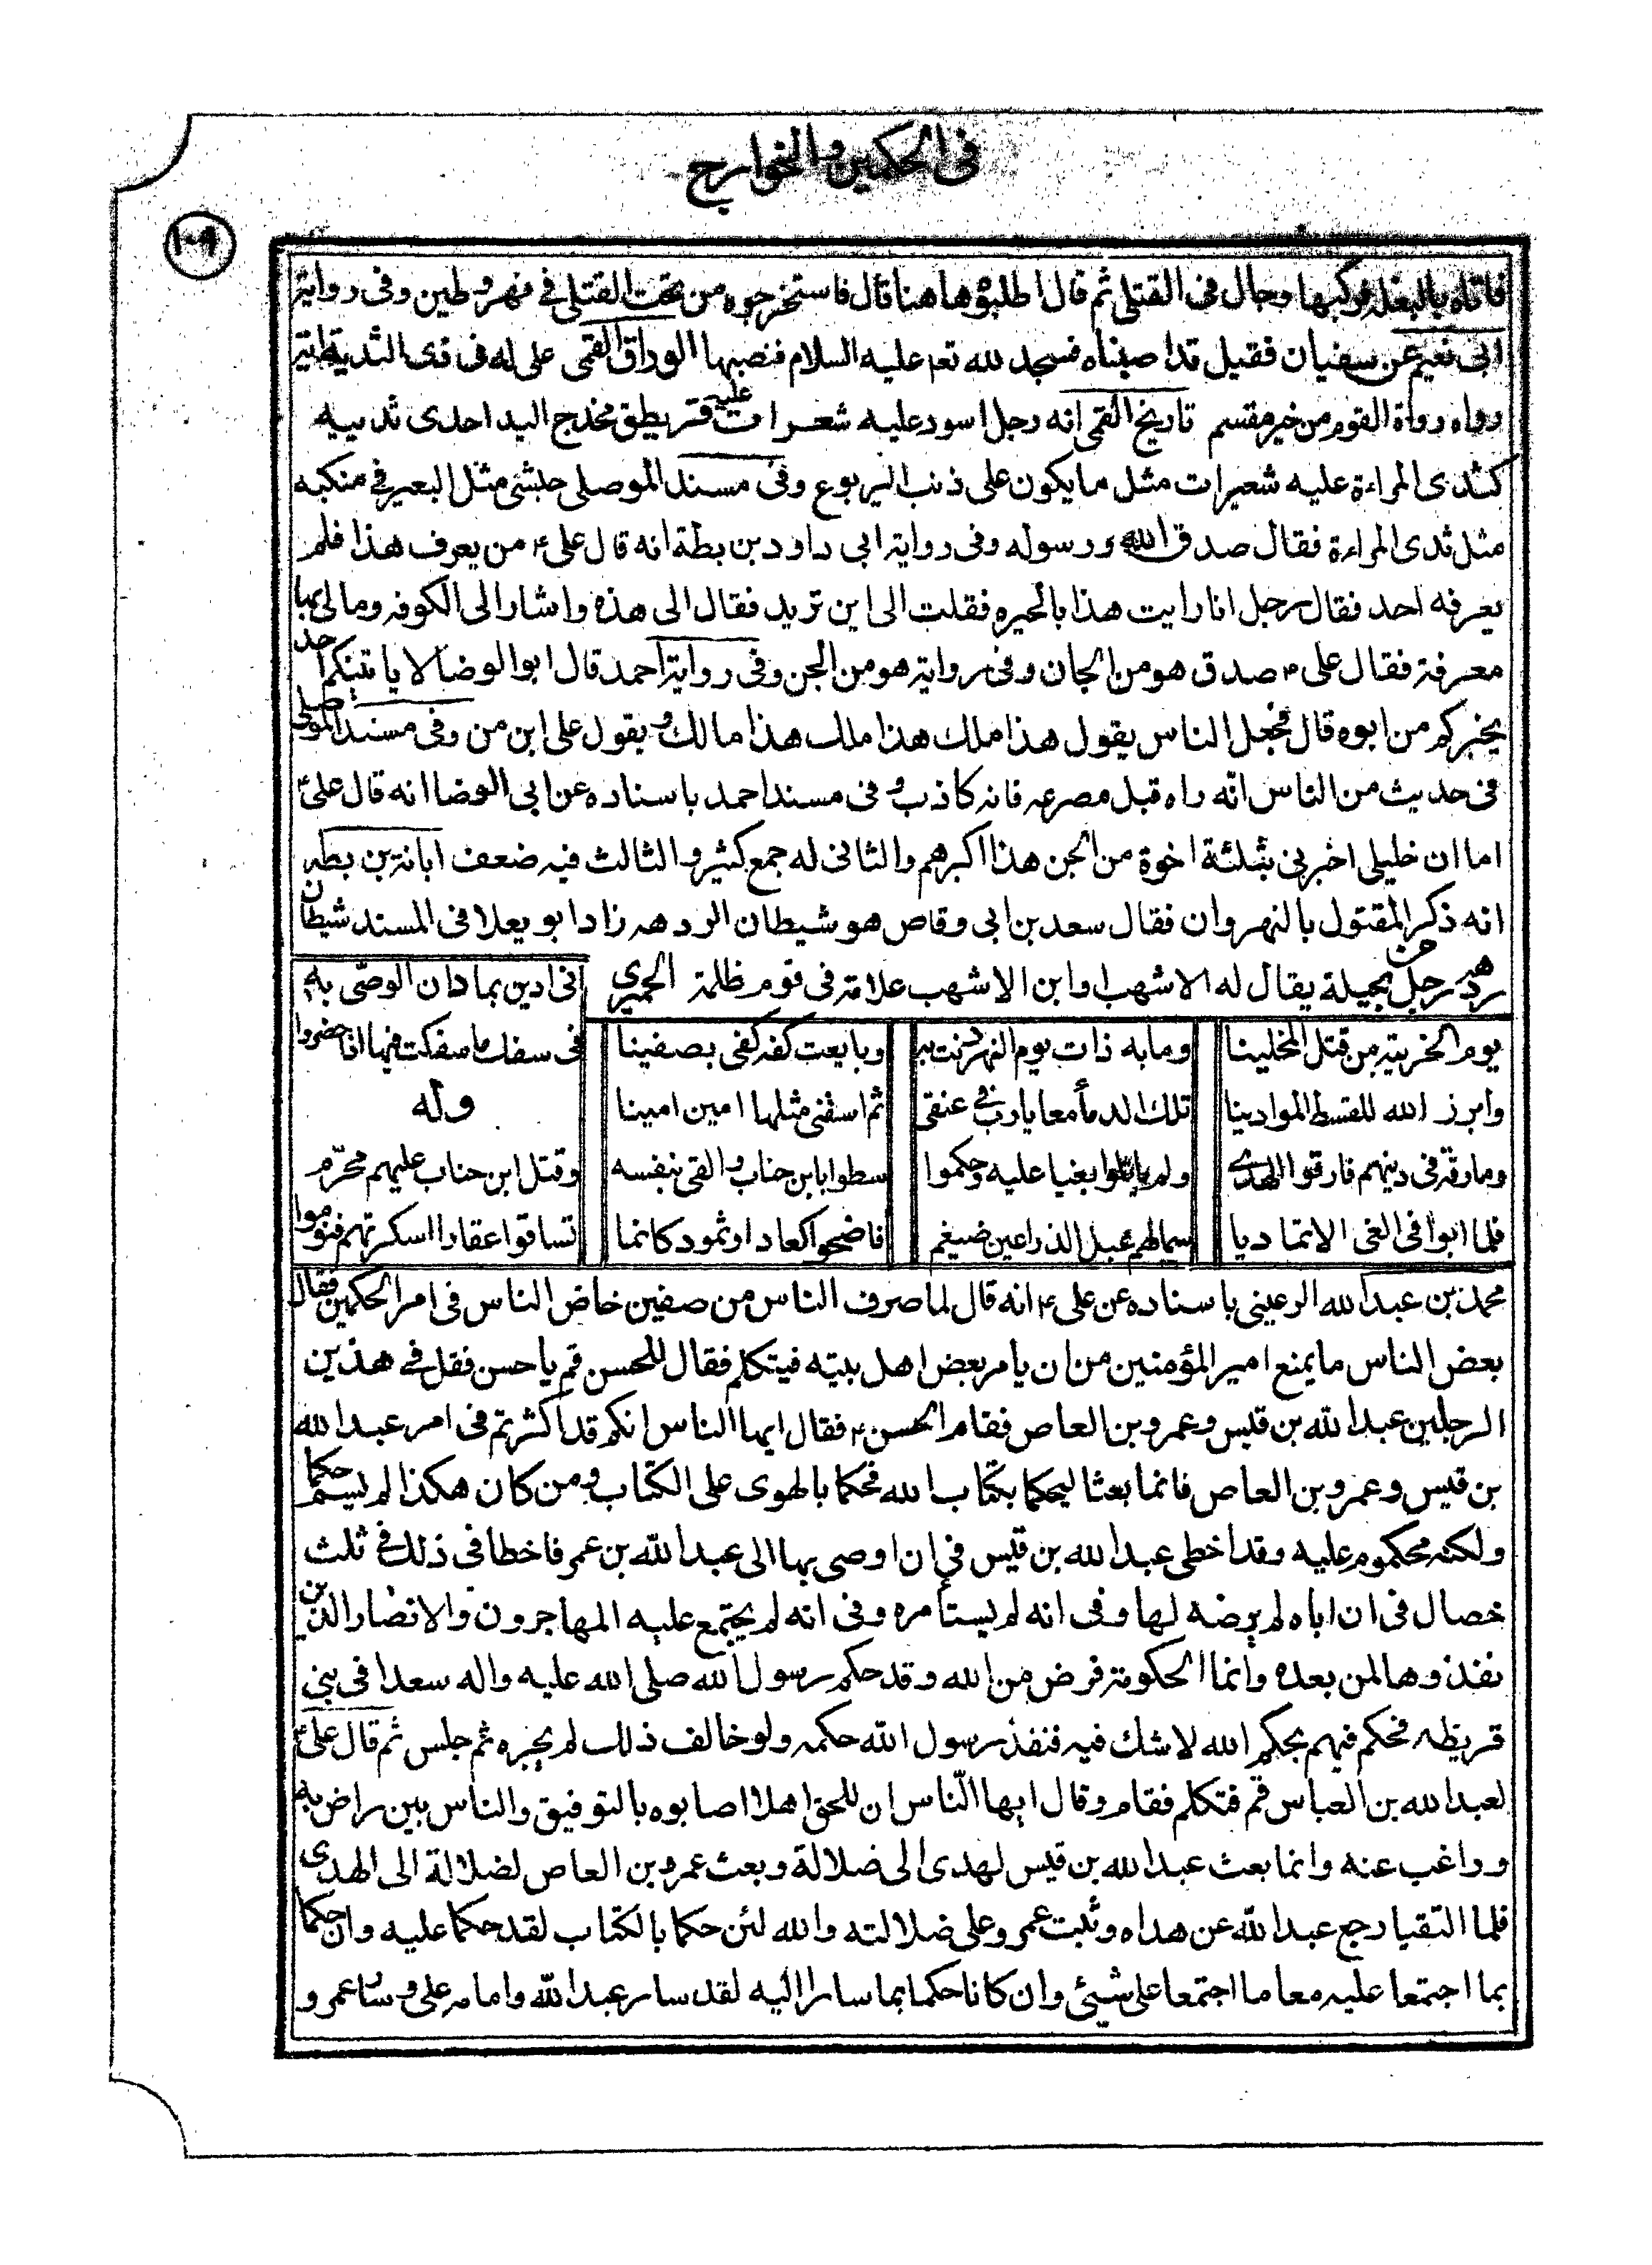 فى الحكمين والخوارج
١٠٩
فاتاه بالبغلة فركبها وجال فى القتلى ثم قال اطلبوها هنا قال فاستخرجوه من تحت القتلى فى نهر وطين وفى رواية
ابى نعيم عن سفيان فقيل قد اصبناه فسجد لله تع عليه السلام فنصبها الوراق القمى على له فى ذى الثدية اية
رواه رواة القوم من خير مقسم تاريخ القمى انه رجل اسود عليه شعرات عليه قريطق مخدج اليد احدى ثدييه
كثدى المراءة عليه شعيرات مثل ما يكون على ذنب اليربوع وفى مسند الموصلى حبشى مثل البعير فى منكبه
مثل ثدى المراءة فقال صدق الله ورسوله وفى رواية ابى داود بن بطة انه قال على ع من يعرف هذا فلم
يعرفه احد فقال رجل انا رايت هذا بالحيره فقلت الى اين تريد فقال الى هذه واشار الى الكوفه ومالى بها
معرفة فقال على ع صدق هو من الجان وفى رواية هو من الجن وفى رواية احمد قال ابو الوضا لا ياتينكم احد
يخبركم من ابوه قال فجعل الناس يقول هذا ملك هذا ملك هذا مالك ويقول على ابن من وفى مسند الموصلى
فى حديث من الناس انه راه قبل مصرعه فانه كاذب وفى مسند احمد باسناده عن ابى الوضا انه قال على ع
اما ان خليلى اخبرنى بثلثة اخوة من الجن هذا اكبرهم والثانى له جمع كثير والثالث فيه ضعف ابانة بن بطه
انه ذكر المقتول بالنهروان فقال سعد بن ابى وقاص هو شيطان الردهه زاد ابو يعلا فى المسند شيطان
ردهه رجل من بجيلة يقال له الاشهب او ابن الاشهب علامة فى قوم ظلمة الحميرى انى ادين بما دان الوصّى به
يوم الخريبة من قتل المحلينا وما به ذات يوم النهر دنت به وبايعت كفه كفى بصفينا فى سفك ما سفكت فيها اذا حضروا
وابرز الله للقسط الموادينا تلك الدمأ معا يا رب فى عنقى ثم اسقنى مثلها امين امينا وله
ومارقة فى دينهم فارقوا الهدى بغيا عليه وحكموا سطوا بابن حناب والقى بنفسه وقتل ابن حناب عليهم محرّم
فلما ابوا فى الغى الا تماديا سما لهم عبل الذراعين ضيغم فاضحوا كعاد او ثمود كانما تساقوا عقارا اسكرتهم فنوموا
محمد بن عبد الله الرعينى باسناده عن على ع انه قال لما صرف الناس من صفين خاض الناس فى امر الحكمين فقال
بعض الناس ما يمنع امير المؤمنين من ان يامر بعض اهل بيته فيتكلم فقال للحسن قم يا حسن فقل فى هذين
الرجلين عبد الله بن قيس وعمرو بن العاص فقام الحسن ع فقال ايها الناس انكم قد اكثرتم فى امر عبد الله
بن قيس وعمرو بن العاص فانما بعثا ليحكما بكتاب الله فحكما بالهوى على الكتاب ومن كان هكذا لم يسم حكما
ولكنه محكموم عليه وقد اخطى عبد الله بن قيس فى ان اوصى بها الى عبد الله بن عمر فاخطا فى ذلك فى ثلث
خصال فى ان اباه لم يرضه لها وفى انه لم يستأمره وفى انه لم يجتمع عليه المهاجرون والانصار الذين
نفذوها لمن بعده وانما الحكومة فرض من الله وقد حكم رسول الله صلى الله عليه واله سعدا فى بنى
قريظه فحكم فيهم بحكم الله لا شك فيه فنفذ رسول الله حكمه ولو خالف ذلك لم يجزه ثم جلس ثم قال على ع
لعبد الله بن العباس قم فتكلم فقام وقال ايها النّاس ان للحق اهلا اصابوه بالتوفيق والناس بين راض به
وراغب عنه وانما بعث عبد الله بن قيس لهدى الى ضلالة وبعث عمرو بن العاص لضلالة الى الهدى
فلما التقيا رجع عبد الله عن هداه وثبت عمرو على ضلالته والله لئن حكما بالكتاب لقد حكما عليه وان حكما
بما اجتمعا عليه معا ما اجتمعا على شيئ وان كانا حكما بما سارا اليه لقد سار عبد الله وامامه على وسار عمرو